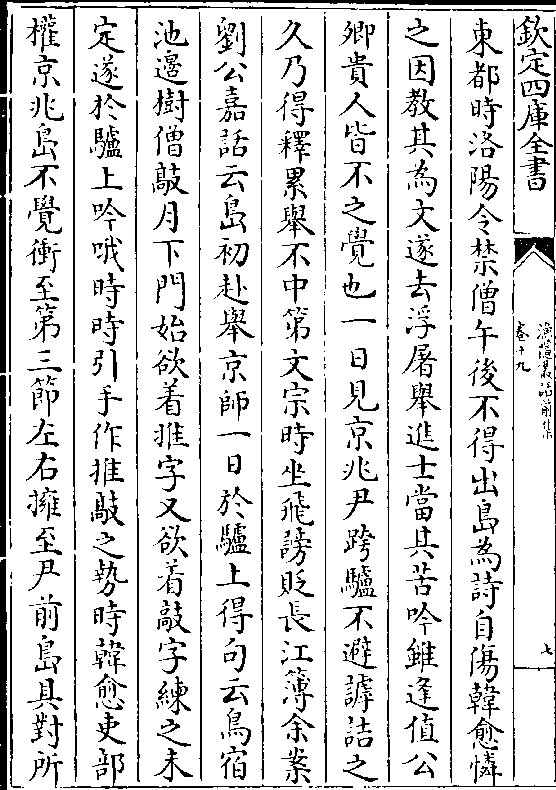 欽定四庫全書
漁隱叢話前集
卷十九
七
東都時洛陽令禁僧午後不得出島為詩自傷韓愈憐
之因教其為文遂去浮屠舉進士當其苦吟雖逢值公
卿貴人皆不之覺也一日見京兆尹跨驢不避謼詰之
久乃得釋累舉不中第文宗時坐飛謗貶長江簿余案
劉公嘉話云島初赴舉京師一日於驢上得句云鳥宿
池邊樹僧敲月下門始欲着推字又欲着敲字練之未
定遂於驢上吟哦時時引手作推敲之勢時韓愈吏部
權京兆島不覺衝至第三節左右擁至尹前島具對所